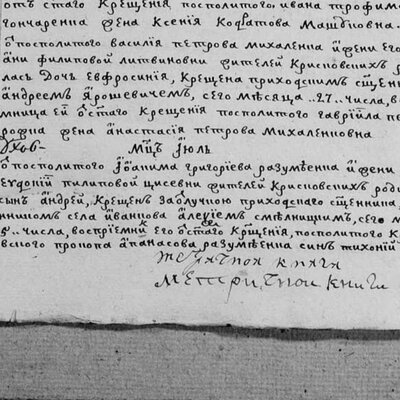 отъ стаго Крещенїя посполитого ивана трофим
гончаренка жена Ксенїя Кодратова Машуповна.
Ѿ посполита василїя петрова михаленка и жени его
ани филиповни литвиновни жителей Крисповскихъ р
лась дочь евфросинїя, Крещена приходскимъ сщен
андреемъ Ярошевичемъ, сего мѣсяца "27" числа, в
мница ей ѿ стаго Крещенїя посполитого гаврїила пе
жена анастасїя петрова Михаленковна
Мцъ Їюль
Ѿ посполитого Їоакима григорїева разумѣенка и жени
евдокїи пилиповой жителей Крисповскихъ роди
сынъ андрей, Крещенъ за отлучкою приходского сщенника,
села иванкова алеѯїемъ сего м
5" числа, воспрїемникъ его ѿ стаго Крщенїя, посполитого К
вского афанасова разумѣенка синъ тихонїй
книга
книги